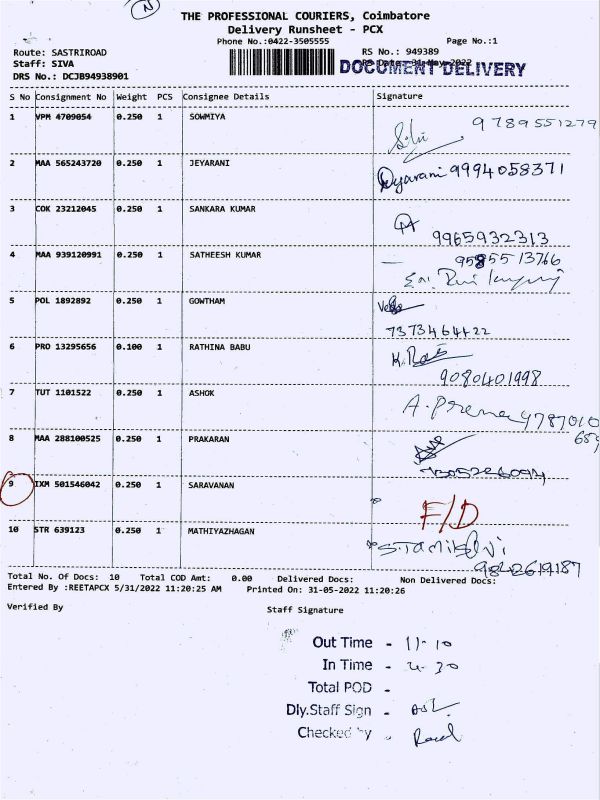 N
THE PROFESSIONAL COURIERS, Coimbatore
Delivery Runsheet - PCX
Phone No.:0422-3505555 Page No.:1
Route: SASTRIROAD RS No.: 949389
Staff: SIVA RS Date: 31-May-2022
DOCUMENT DELIVERY
DRS No.: DCJB94938901
S No Consignment No Weight PCS Consignee Details Signature
1 VPM 4709054 0.250 1 SOWMIYA 9789551279
2 MAA 565243720 0.250 1 JEYARANI Jeyarani 9994058371
3 COK 23212045 0.250 1 SANKARA KUMAR
9965932313
4 MAA 939120991 0.250 1 SATHEESH KUMAR 9585513766
5 POL 1892892 0.250 1 GOWTHAM
7373464422
6 PRO 13295656 0.100 1 RATHINA BABU
9080401998
7 TUT 1101522 0.250 1 ASHOK A. Prema
8 MAA 288100525 0.250 1 PRAKARAN
9 IXM 501546042 0.250 1 SARAVANAN F/D
10 STR 639123 0.250 1 MATHIYAZHAGAN S.Tamilselvi
9842619187
Total No. Of Docs: 10 Total COD Amt: 0.00 Delivered Docs: Non Delivered Docs:
Entered By :REETAPCX 5/31/2022 11:20:25 AM Printed On: 31-05-2022 11:20:26
Verified By Staff Signature
Out Time - 11-10
In Time - 4-30
Total POD -
Dly.Staff Sign -
Checked by -